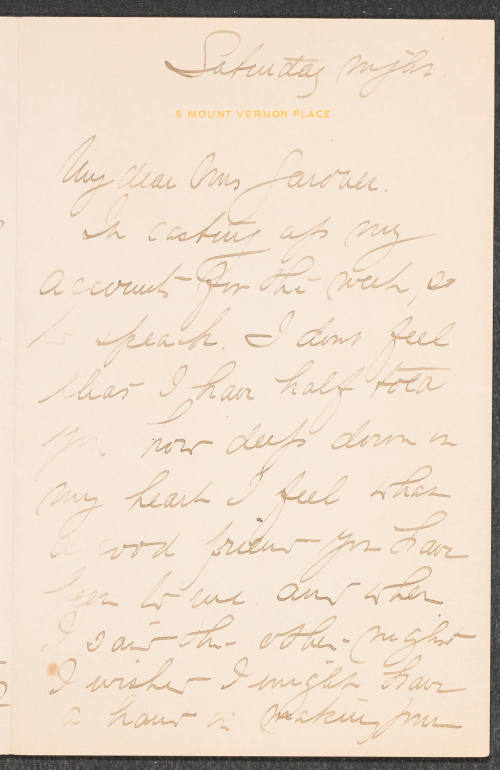 Saturday night.
5 MOUNT VERNON PLACE.
My dear Mrs Gardner.
In casting up my
accounts for the week, so
to speak. I dont feel
that I have half told
you how deep down in
my heart I feel what
a good friend you have
been to me and when
I said the other night
I wished I might have
a hand in making your